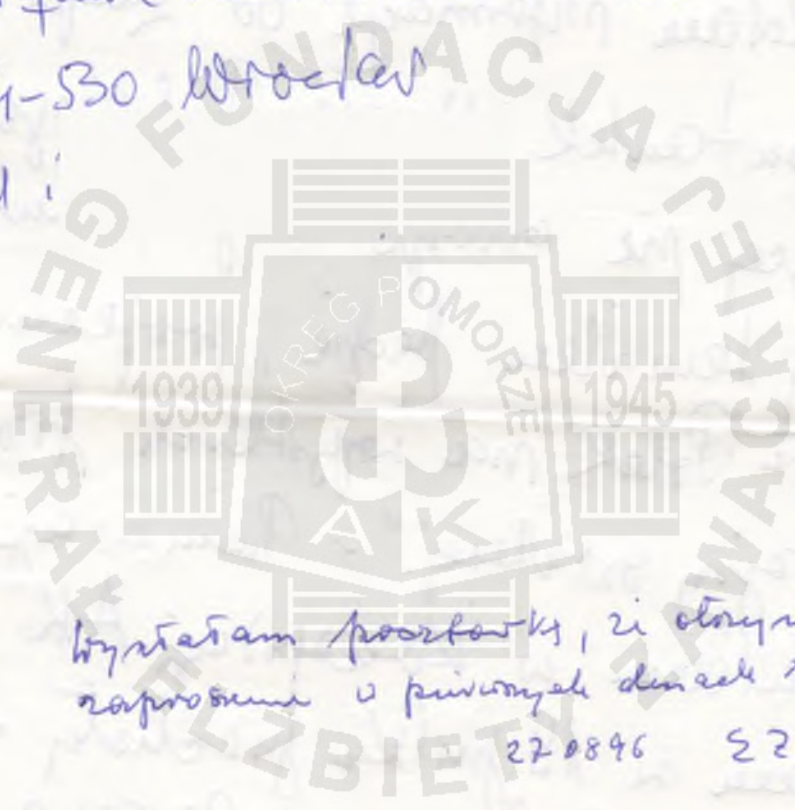 -530 Wrocław
i
FUNDACJA
GENERAŁ
ELŻBIETY ZAWACKIEJ
OKRĘG POMORZE
1939
1945
AK
Wysłałam pocztówkę, że otrzym
zaproszenie w pierwszych dniach
270896 EZ